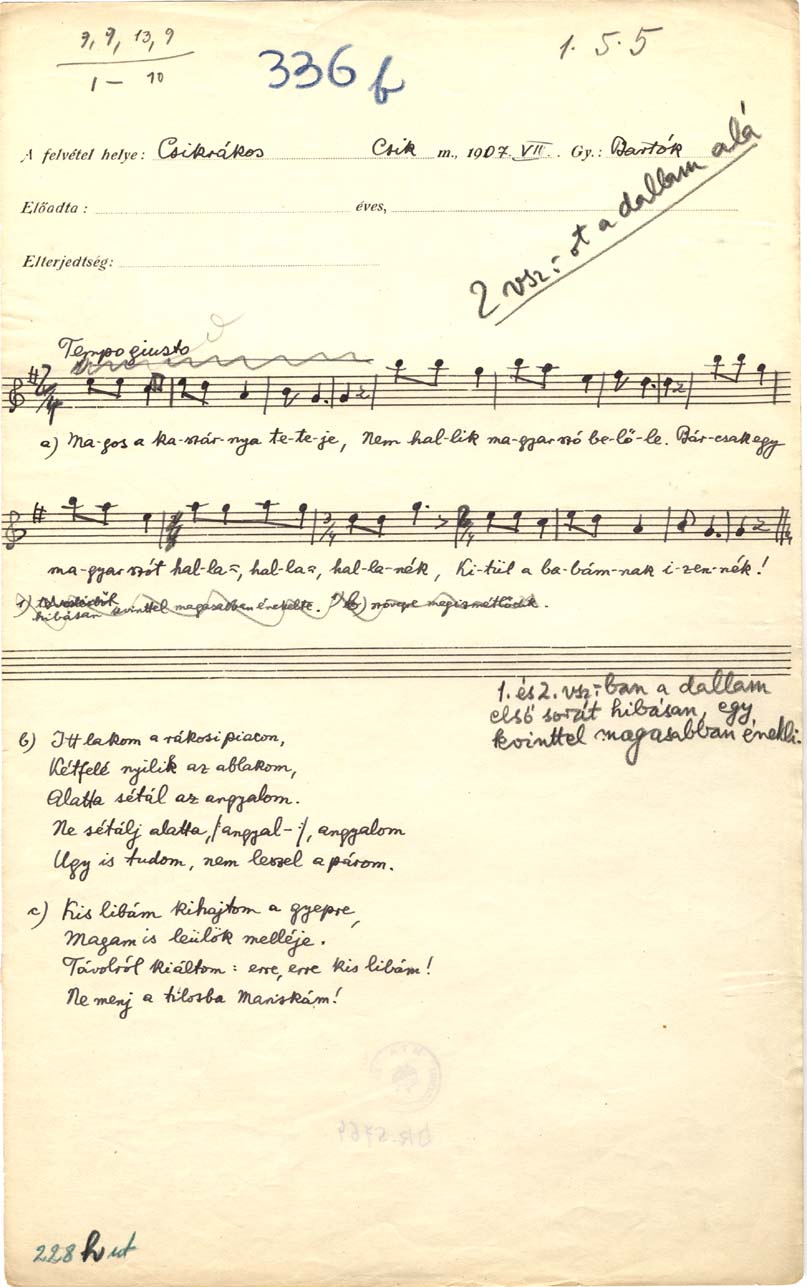 9, 9, 13, 9
1 – 10
336 b
1. 5. 5
A felvétel helye: Csikrákos Csik m., 1907. VII. Gy.: Bartók
Előadta: éves,
Elterjedtség:
2 vsz.-ot a dallam alá
Tempo giusto
a) Ma-gos a ka-szár-nya te-te-je, Nem hal-lik ma-gyar szó be-lő-le. Bár-csak egy
ma-gyar szót hal-la=, hal-la=, hal-la-nék, Ki-tül a ba-bám-nak i-zen-nék!
hibásan kvinttel magasabban énekelte. b) szövegre megismétlődik.
1. és 2. vsz.-ban a dallam
első sorát hibásan, egy
kvinttel magasabban énekli.
b) Itt lakom a rákosi piacon,
Kétfelé nyilik az ablakom,
Alatta sétál az angyalom.
Ne sétálj alatta, /: angyal- :/, angyalom
Ugy is tudom, nem leszel a párom.
c) Kis libám kihajtom a gyepre,
Magam is leülök melléje.
Távolról kiáltom: erre, erre kis libám!
Ne menj a tilosba Mariskám!
228 h ut